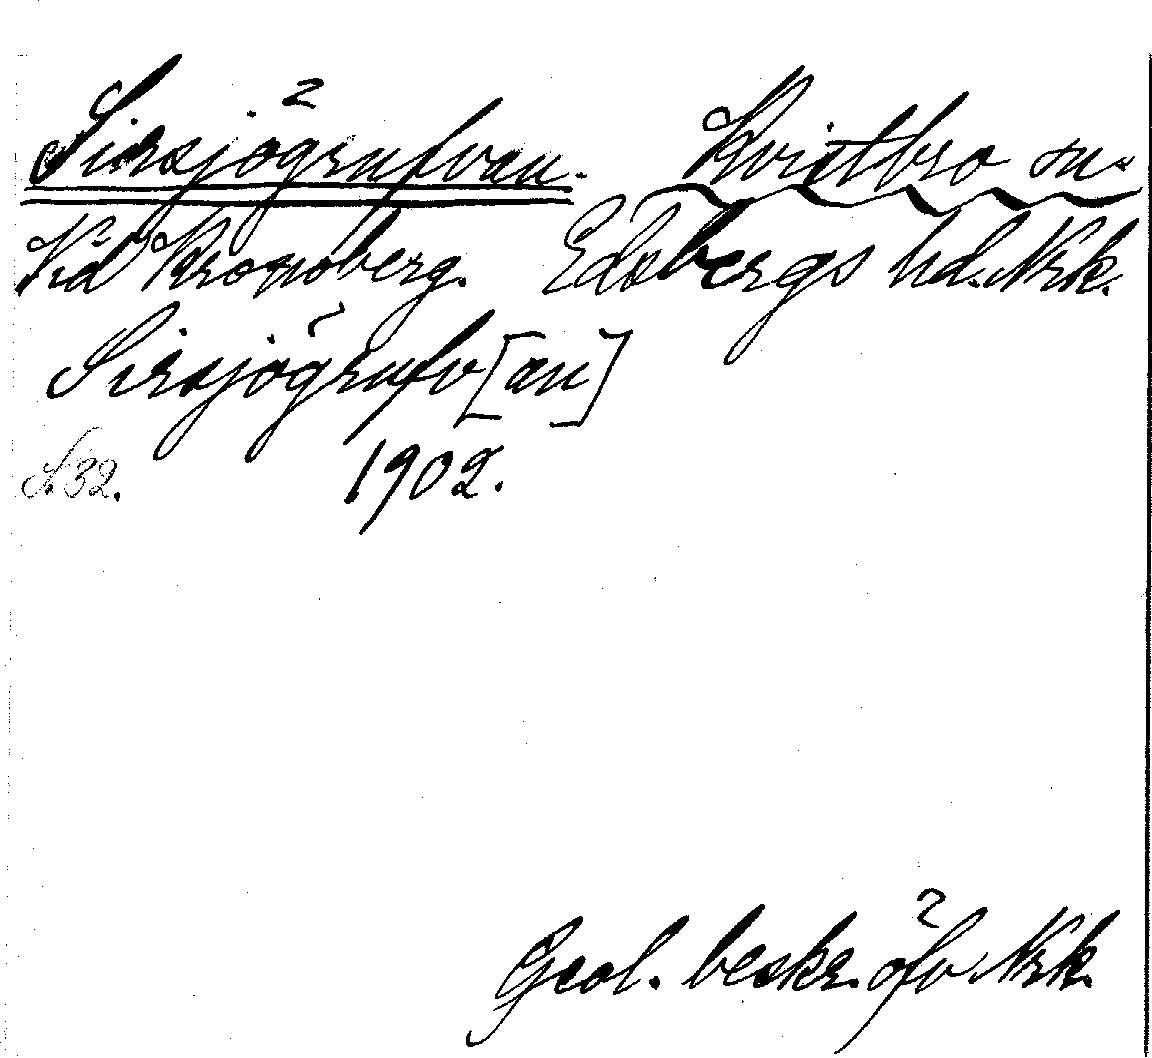 Sirsjögrufvan. Kvistbro sn.
Vid Kronoberg. Edsbergs hd. Nrk.
Sirsjögrufv[an]
S. 32. 1902.
Geol. beskr. öfv Nrk.